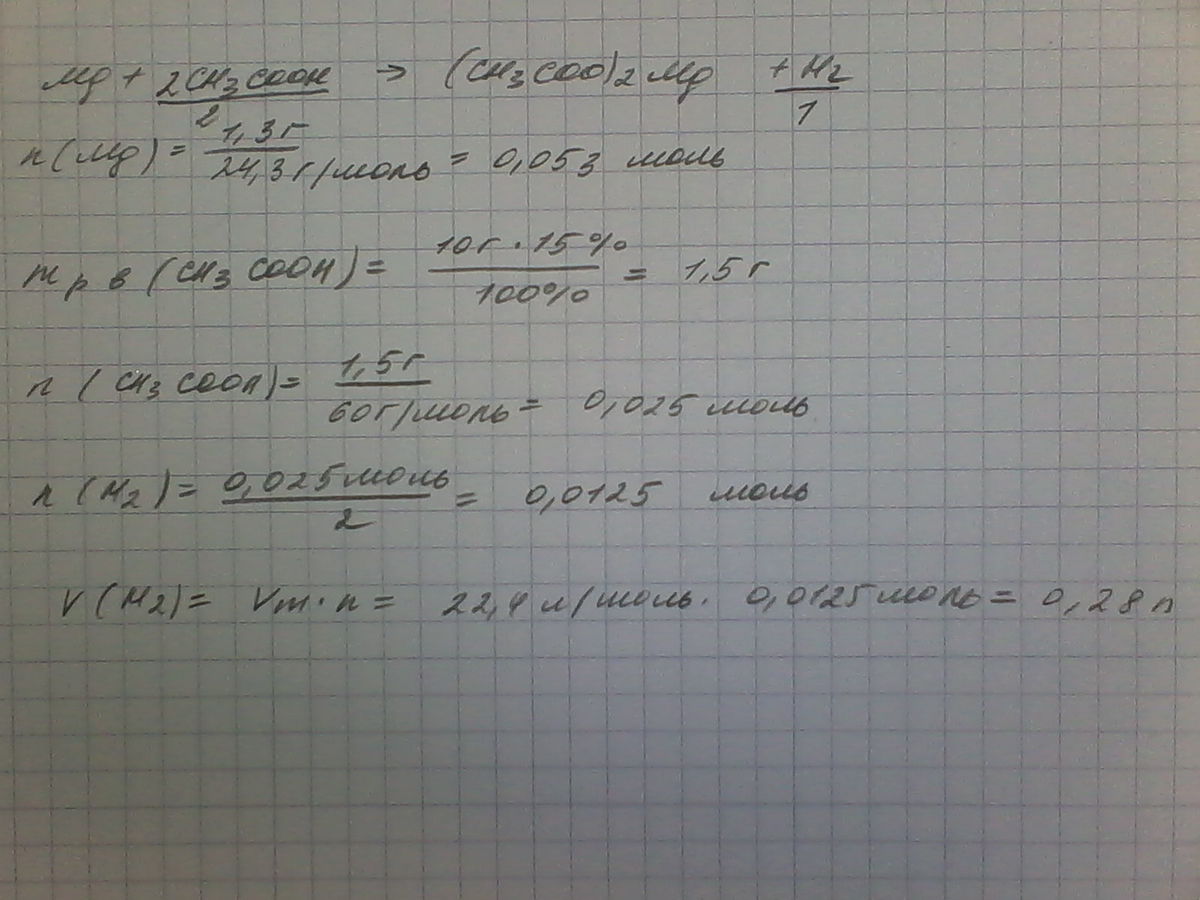 Mg + 2CH3COOH → (CH3COO)2Mg + H2
2 1
n(Mg) = 1,3г / 24,3г/моль = 0,053 моль
m р в (CH3COOH) = 10г · 15% / 100% = 1,5 г
n (CH3COOH) = 1,5г / 60г/моль = 0,025 моль
n (H2) = 0,025моль / 2 = 0,0125 моль
V(H2) = Vm · n = 22,4 л/моль · 0,0125моль = 0,28 л